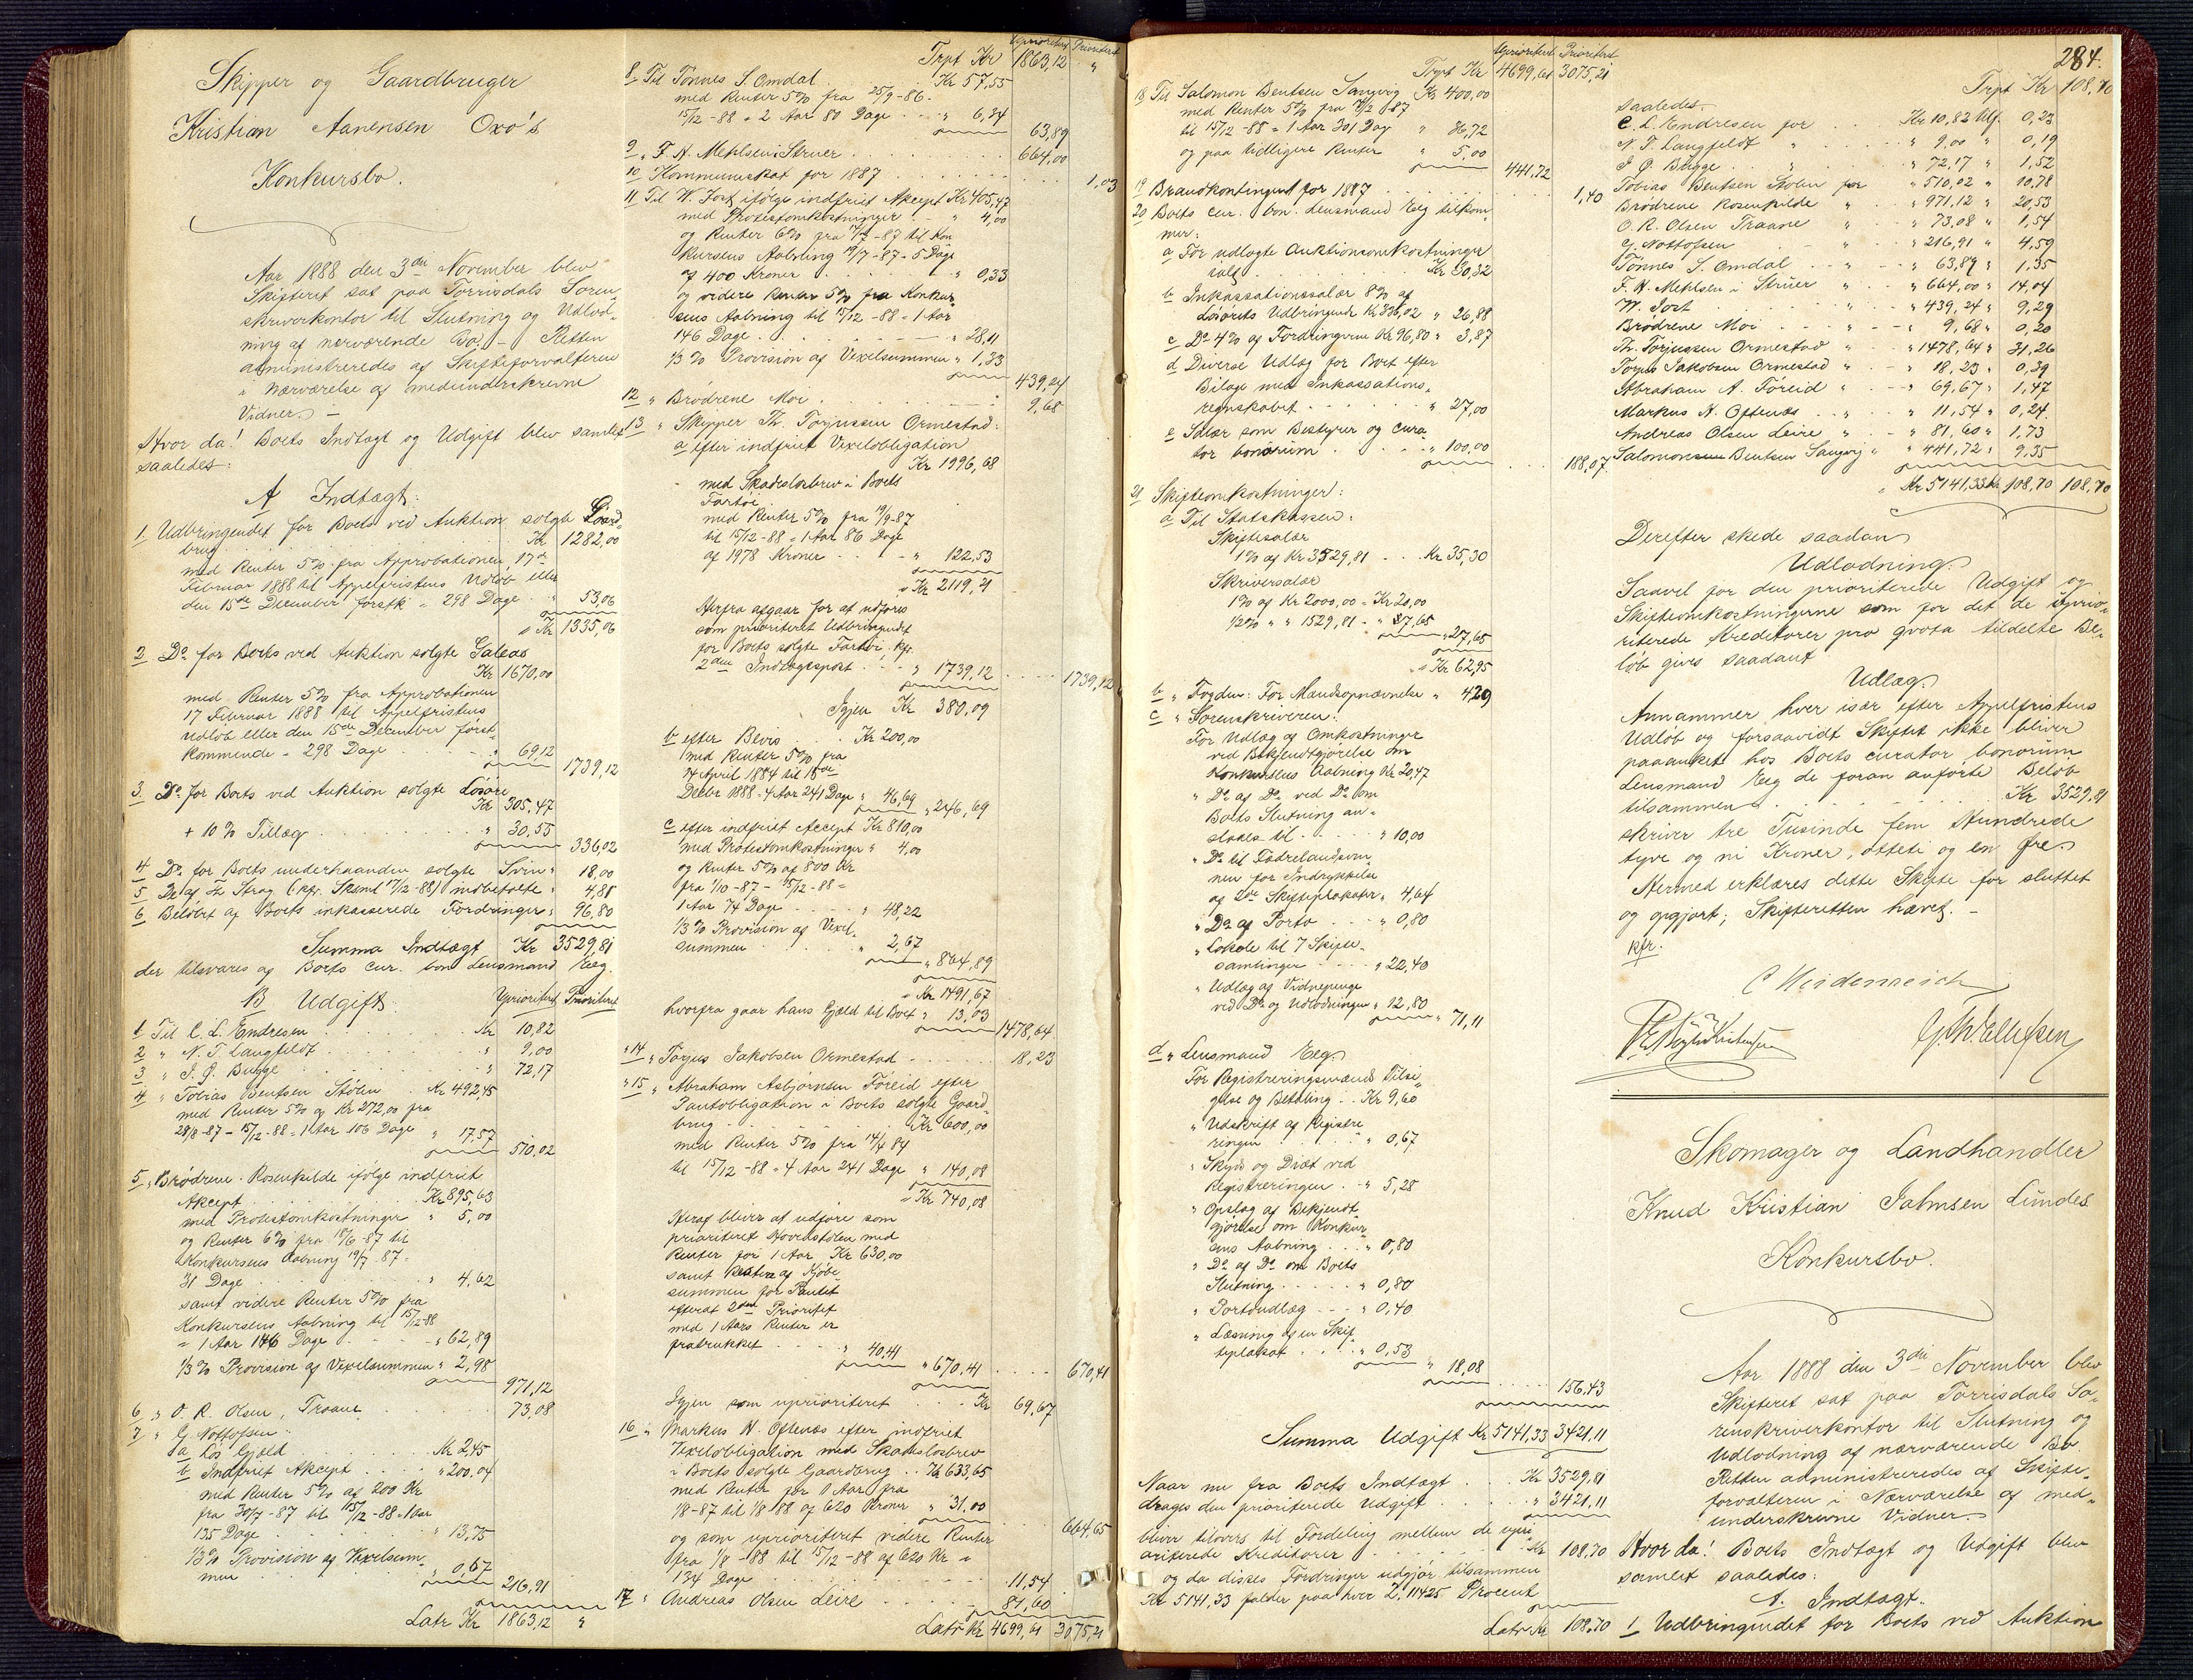 Skipper og Gaardbruger
Kristian Aanensen Oxø's
Konkursbo.
Aar 1888 den 3die November blev
Skifteret sat paa Torrisdals Soren
skriverkontor til Slutning og Udlod-
ning af nærværende Bo. – Retten
administreredes af Skifteforvalteren
i Nærværelse af medunderskrevne
Vidner. –
Hvor da! Boets Indtægt og Udgift blev samlet
saaledes:
A Indtægt:
1. Udbringendet for Boets ved Auktion solgte Gaard-
brug Kr 1282,00
med Renter 5% fra Approbationen, 17de
Februar 1888 til Appelfristens Udløb eller
den 15de December førstk = 298 Dage " 53,06
Kr 1335,06
2 Do for Boets ved Auktion solgte Galeas
Kr 1670,00
med Renter 5% fra Approbationen
17 Februar 1888 til Appelfristens
Udløb eller den 15de December først-
kommende = 298 Dage " 69,12
1739,12
3. Do for Boets ved Auktion solgte Løsøre
Kr 305,47
+ 10% Tillæg " 30,55
336,02
4 Do for Boets underhaanden solgte Svin " 18,00
5 De af Fr Strag (kfr. Skiml 17/12-88) indbetalte " 4,81
6 Beløbet af Boets inkasserede Fordringer " 96,80
Summa Indtægt Kr 3529,81
der tilsvares af Boets cur. bon. Lensmand Eeg.
B Udgift: Uprioritert Prioritert
1 Til C. L. Endresen Kr 10,82
2 " N. T. Langfeldt " 9,00
3 " J. G. Bugge " 72,17
4 " Tobias Bentsen Stølen Kr 492,45
med Renter 5% af Kr 272,00 fra
28/8-87 – 15/12-88 = 1 Aar 106 Dage " 17,57
510,02
5 " Brødrene Rosenkilde ifølge indfriet
Akcept Kr 895,63
med Protestomkostninger " 5,00
og Renter 6% fra 18/6-87 til
Konkursens Aabning 19/7 87 =
31 Dage " 4,62
samt videre Renter 5% fra
Konkursens Aabning til 15/12-88
= 1 Aar 146 Dage " 62,89
1/3% Provision af Vexelsummen " 2,98
971,12
6 " O. R. Olsen, Traane 73,08
7 " G. Nottofsen:
a Løs Gjeld Kr 2,45
b Indfriet Akcept " 200,04
med Renter 5% af 200 Kr
fra 30/7-87 til 15/12-88 = 1 Aar
135 Dage " 13,75
1/3% Provision af Vexelsum-
men " 0,67
216,91
Latr Kr 1863,12 "
Uprioritert Prioritert
Trpt Kr 1863,12 "
8 Til Tønnes S. Omdal Kr 57,55
med Renter 5% fra 25/9-86 -
15/12-88 = 2 Aar 80 Dage " 6,34
63,89
9 " F. H. Mehlsen i Struer 664,00
10 " Kommuneskat for 1887 1,03
11 Til W. Jost ifølge indfriet Akcept Kr 405,47
med Protestomkostninger " 4,00
og Renter 6% fra 14/7-87 til Kon
kursens Aabning 19/7-87 = 5 Dage
af 400 Kroner " 0,33
og videre Renter 5% fra Konkur-
sens Aabning til 15/12-88 = 1 Aar
146 Dage " 28,11
1/3% Provision af Vexelsummen " 1,33
439,24
12 " Brødrene Moi 9,68
13 " Skipper Th. Torjussen Ormestad:
a efter indfriet Vexelobligation
Kr 1996,68
med Skadesløsbrev i Boets
Fartøi
med Renter 5% fra 19/9-87
til 15/12-88 = 1 Aar 86 Dage
af 1978 Kroner " 122,53
Kr 2119,21
Herfra afgaar for at udføres
som prioriteret Udbringendet
for Boets solgte Fartøi, kfr.
2den Indtægtspost " 1739,12 1739,12
Igjen Kr 380,09
b efter Bevis Kr 200,00
med Renter 5% fra
14 April 1884 til 15de
Decbr 1888 = 4 Aar 241 Dage " 46,69 " 246,69
c efter indfriet Accept Kr 810,00
med Protestomkostninger " 4,00
og Renter 5% af 800 Kr
fra 1/10-87 – 15/12-88 =
1 Aar 74 Dage " 48,22
1/3% Provision af Vexel-
summen " 2,67
" 864,89
Kr 1491,67
hvorfra gaar hans Gjeld til Boet " 13,03
1478,64
14 " Torjus Jakobsen Ormestad 18,23
15 " Abraham Asbjørnsen Føreid efter
Pantobligation i Boets solgte Gaard-
brug Kr 600,00
med Renter 5% fra 14/4 84
til 15/12-88 = 4 Aar 241 Dage " 140,08
Kr 740,08
Heraf bliver at udføre som
prioriteret Hovedstolen med
Renter for 1 Aar Kr 630,00
samt Resten af Kjøbe-
summen for Pantet
efterat 2den Prioritet
med 1 Aars Renter er
fratrukket " 40,41
" 670,41 670,41
Igjen som uprioriteret Kr 69,67
16 " Markus N. Oftenæs efter indfriet
Vexelobligation med Skadesløsbrev
i Boets solgte Gaardbrug Kr 633,65
med Renter for 1 Aar fra
1/8-87 til 1/8 88 af 620 Kroner " 31,00
664,65
og som uprioriteret videre Renter
fra 1/8-88 til 15/12-88 af 620 Kr =
134 Dage 11,54
17 " Andreas Olsen Leire 81,60
Latr Kr 4699,61 3075,21
Uprioritert Prioritert
Trpt Kr 4699,61 3075,21
18 Til Salomon Bentsen Sangvig Kr 400,00
med Renter 5% fra 17/2 87
til 15/12-88 = 1 Aar 301 Dag " 36,72
og paa tidligere Renter " 5,00
441,72
19 Brandkontingent for 1887 1,40
20 Boets cur. bon. Lensmand Eeg tilkom-
mer:
a For udlagte Auktionsomkostninger
ialt Kr 30,32
b Inkassationssalær 8% af
Løsørets Udbringende Kr 336,02 " 26,88
c Do 4% af Fordringerne Kr 96,80 " 3,87
d Diverse Udlæg for Boet efter
Bilage med Inkassations-
regnskabet " 27,00
e Salær som Bestyrer og cura-
tor bonorum " 100,00
188,07
21 Skifteomkostninger:
a Til Statskassen:
Skiftesalær
1% af Kr 3529,81 Kr 35,30
Skriversalær
1% af Kr 2000,00 = Kr 20,00
1/2% " " 1529,81 = " 7,65
" 27,65
Kr 62,95
b " Fogden: For Mændsopnævnelse " 4,29
c " Sorenskriveren:
For Udlæg og Omkostninger
ved Bekjendtgjørelse om
Konkursens Aabning Kr 20,47
" Do af Do ved Do om
Boets Slutning an-
slaaes til " 10,00
" Do til Fædrelandsven-
nen for Indrykkelse
af 2de Skifteplakater " 4,64
" Do af Porto " 0,80
" Lokale til 7 Skifte-
samlinger " 22,40
" Udlæg af Vidnepenge
ved Do og Udlodningen " 12,80
" 71,11
d " Lensmand Eeg:
For Registreringsmænds Tilsi-
gelse og Betaling Kr 9,60
" Udskrift af Registre
ringen " 0,67
" Skyds og Diæt ved
Registreringen " 5,28
" Opslag af Bekjendt-
gjørelse om Konkur-
sens Aabning " 0,80
" Do af Do om Boets
Slutning " 0,80
" Portoudlæg " 0,40
" Læsning af en Skif-
teplakat " 0,53
" 18,08
156,43
Summa Udgift Kr 5141,33 3421,11
Naar nu fra Boets Indtægt Kr 3529,81
drages den prioriterede Udgift " 3421,11
bliver tilovers til Fordeling mellem de upri-
oriterede Kreditorer Kr 108,70
og da disses Fordringer udgjør tilsammen
Kr 5141,33 falder paa hver 2,11425 Procent
Latr Kr 108,70
284.
Trpt Kr 108,70
saaledes:
C. L. Endresen for Kr 10,82 Udl. 0,23
N. T. Langfeldt " " 9,00 " 0,19
J. G. Bugge " " 72,17 " 1,52
Tobias Bentsen Stølen for " 510,02 " 10,78
Brødrene Rosenkilde " " 971,12 " 20,53
O. R. Olsen Traane " " 73,08 " 1,54
G. Nottofsen " 216,91 " 4,59
Tønnes S. Omdal " " 63,89 " 1,35
F. H. Mehlsen i Struer " " 664,00 " 14,04
W. Jost " " 439,24 " 9,29
Brødrene Moi " " 9,68 " 0,20
Th. Torjussen Ormestad " " 1478,64 " 31,26
Torjus Jakobsen Ormestad " " 18,23 " 0,39
Abraham A. Føreid " " 69,67 " 1,47
Markus N. Oftenæs " " 11,54 " 0,24
Andreas Olsen Leire " " 81,60 " 1,73
Salomon Bentsen Sangvig " " 441,72 " 9,35
Kr 5141,33 Kr 108,70 108,70
Derefter skede saadan
Udlodning:
Saavel for den prioriterede Udgift og
Skifteomkostningerne som for det de uprio-
riterede Kreditorer pro qvota tildelte Be-
løb gives saadant
Udlæg:
Annammer hver især efter Appelfristens
Udløb og forsaavidt Skiftet ikke bliver
paaanket hos Boets curator bonorum
Lensmand Eeg de foran anførte Beløb
tilsammen Kr 3529,81
skriver tre Tusinde fem Hundrede
tyve og ni Kroner, otteti og en Øre.
Hermed erklæres dette Skifte for sluttet
og opgjort; Skifteretten hævet. –
kfr.
C Heidenreich
G. W. Ellefsen
Skomager og Landhandler
Knud Kristian Salmsen Lundes
Konkursbo.
Aar 1888 den 3die November blev
Skifteret sat paa Torrisdals So-
renskriverkontor til Slutning og
Udlodning af nærværende Bo.
Retten administreredes af Skifte-
forvalteren i Nærværelse af med-
underskrevne Vidner. –
Hvor da! Boets Indtægt og Udgift blev
samlet saaledes:
A. Indtægt.
1 Udbringendet for Boets ved Auktion